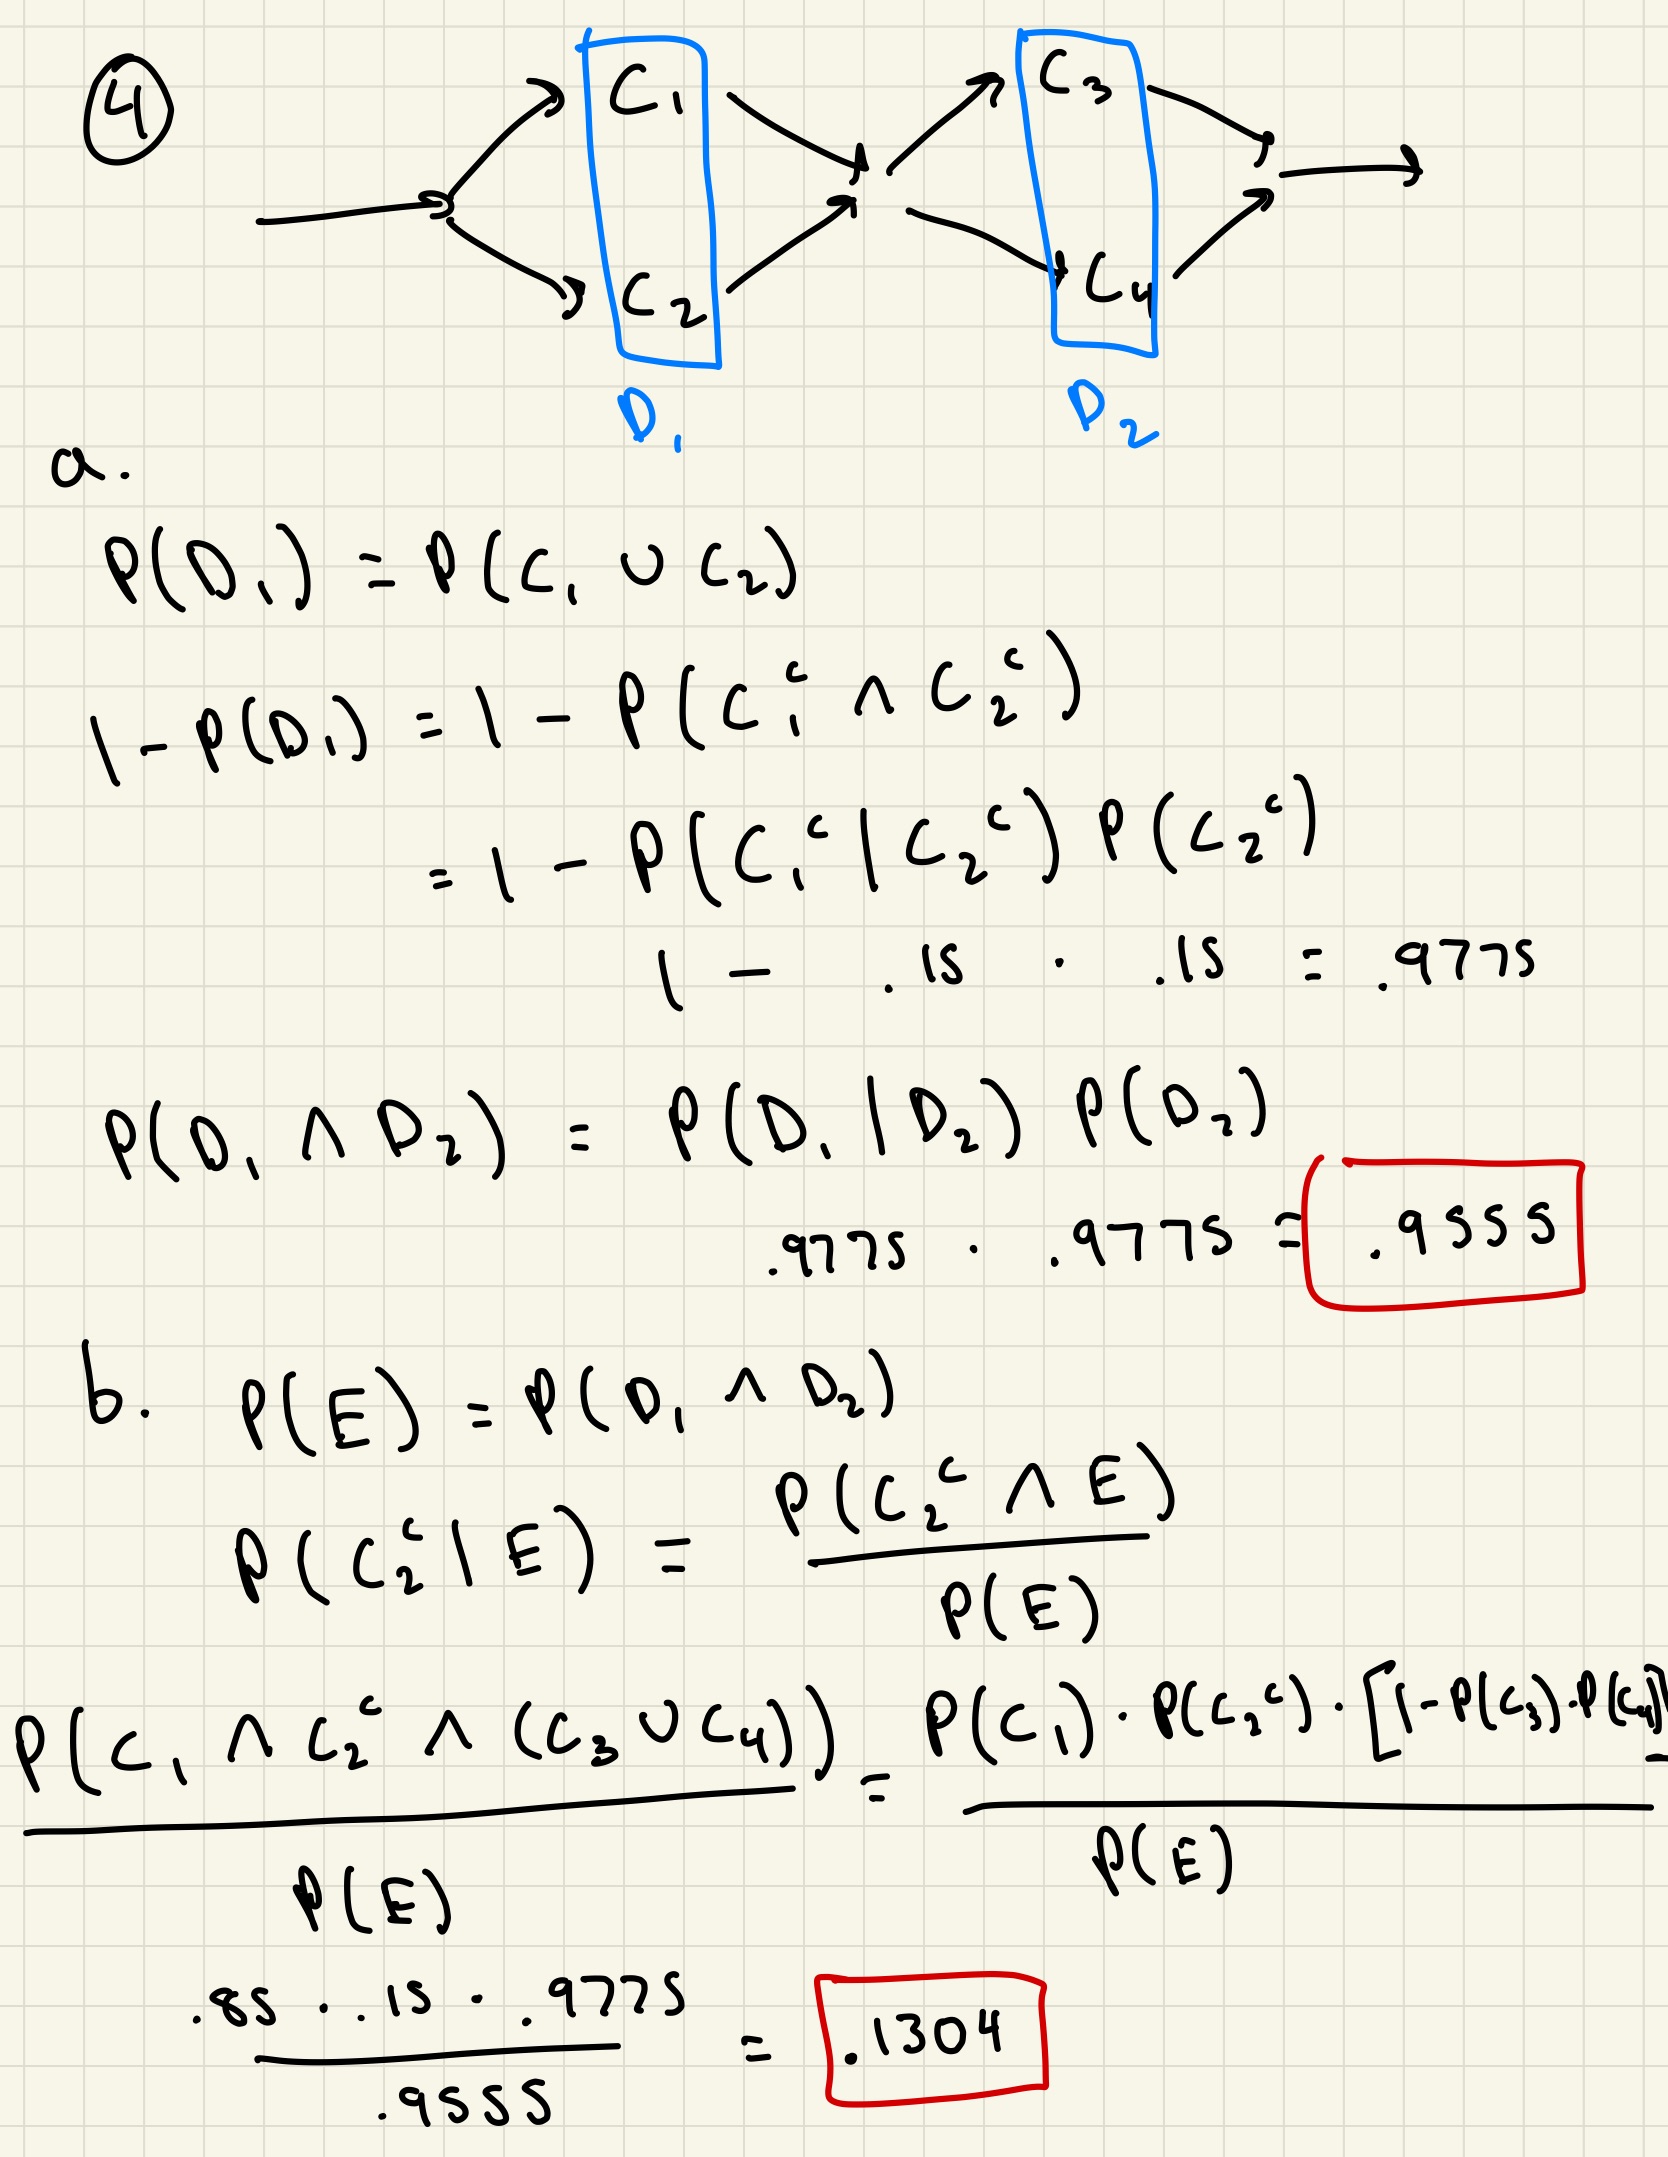 ④
C₁ C₃
C₂ C₄
D₁ D₂
a.
P(D₁) = P(C₁ ∪ C₂)
1 - P(D₁) = 1 - P(C₁ᶜ ∧ C₂ᶜ)
= 1 - P(C₁ᶜ | C₂ᶜ) P(C₂ᶜ)
1 - .15 · .15 = .9775
P(D₁ ∧ D₂) = P(D₁ | D₂) P(D₂)
.9775 · .9775 = .9555
b. P(E) = P(D₁ ∧ D₂)
P(C₂ᶜ | E) = P(C₂ᶜ ∧ E)
P(E)
P(C₁ ∧ C₂ᶜ ∧ (C₃ ∪ C₄)) = P(C₁) · P(C₂ᶜ) · [1 - P(C₃) · P(C₄)]
P(E) P(E)
.85 · .15 · .9775 = .1304
.9555